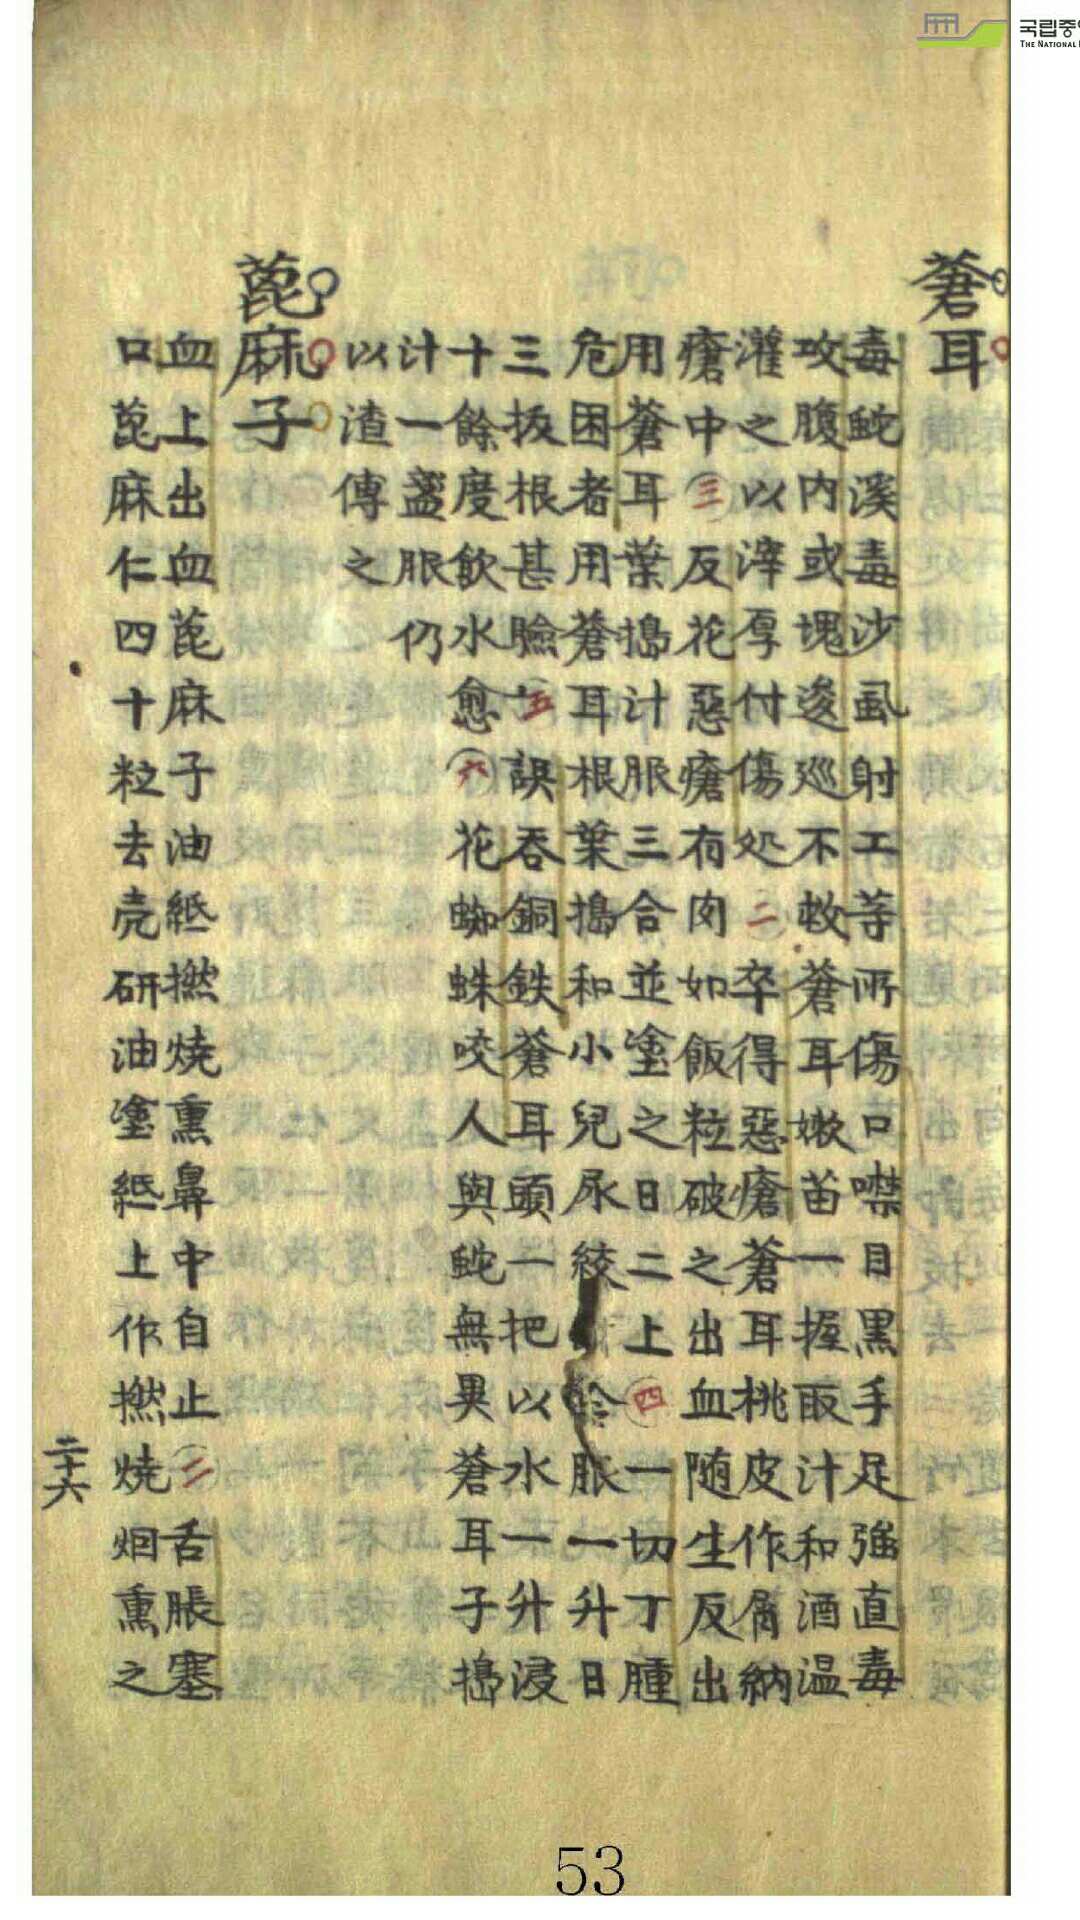 국립중
THE NATIONAL
蒼耳
毒蛇溪毒沙虱射工等所傷口噤目黑手足強直毒
攻腹內或塊逡巡不救蒼耳嫰苗一握取汁和酒温
灌之以滓厚付傷処二卒得惡瘡蒼耳桃皮作屑納
瘡中三反花惡瘡有肉如飯粒破之出血随生反出
用蒼耳葉搗汁服三合並塗之日二上四一切丁腫
危困者用蒼耳根葉搗和小兒尿絞 服一升日
三拔根甚驗五誤吞銅鉄蒼耳頭一把以水一升浸
十餘度飮水愈六花蜘蛛咬人與蛇無異蒼耳子搗
汁一盞服仍
以渣傅之
蓖麻子
血上出血蓖麻子油紙撚燒熏鼻中自止二舌脹塞
口蓖麻仁四十粒去壳研油塗紙上作撚燒烟熏之
二十六
53